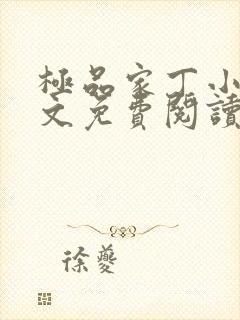 極品家丁小
文免費閱讀
徐夔